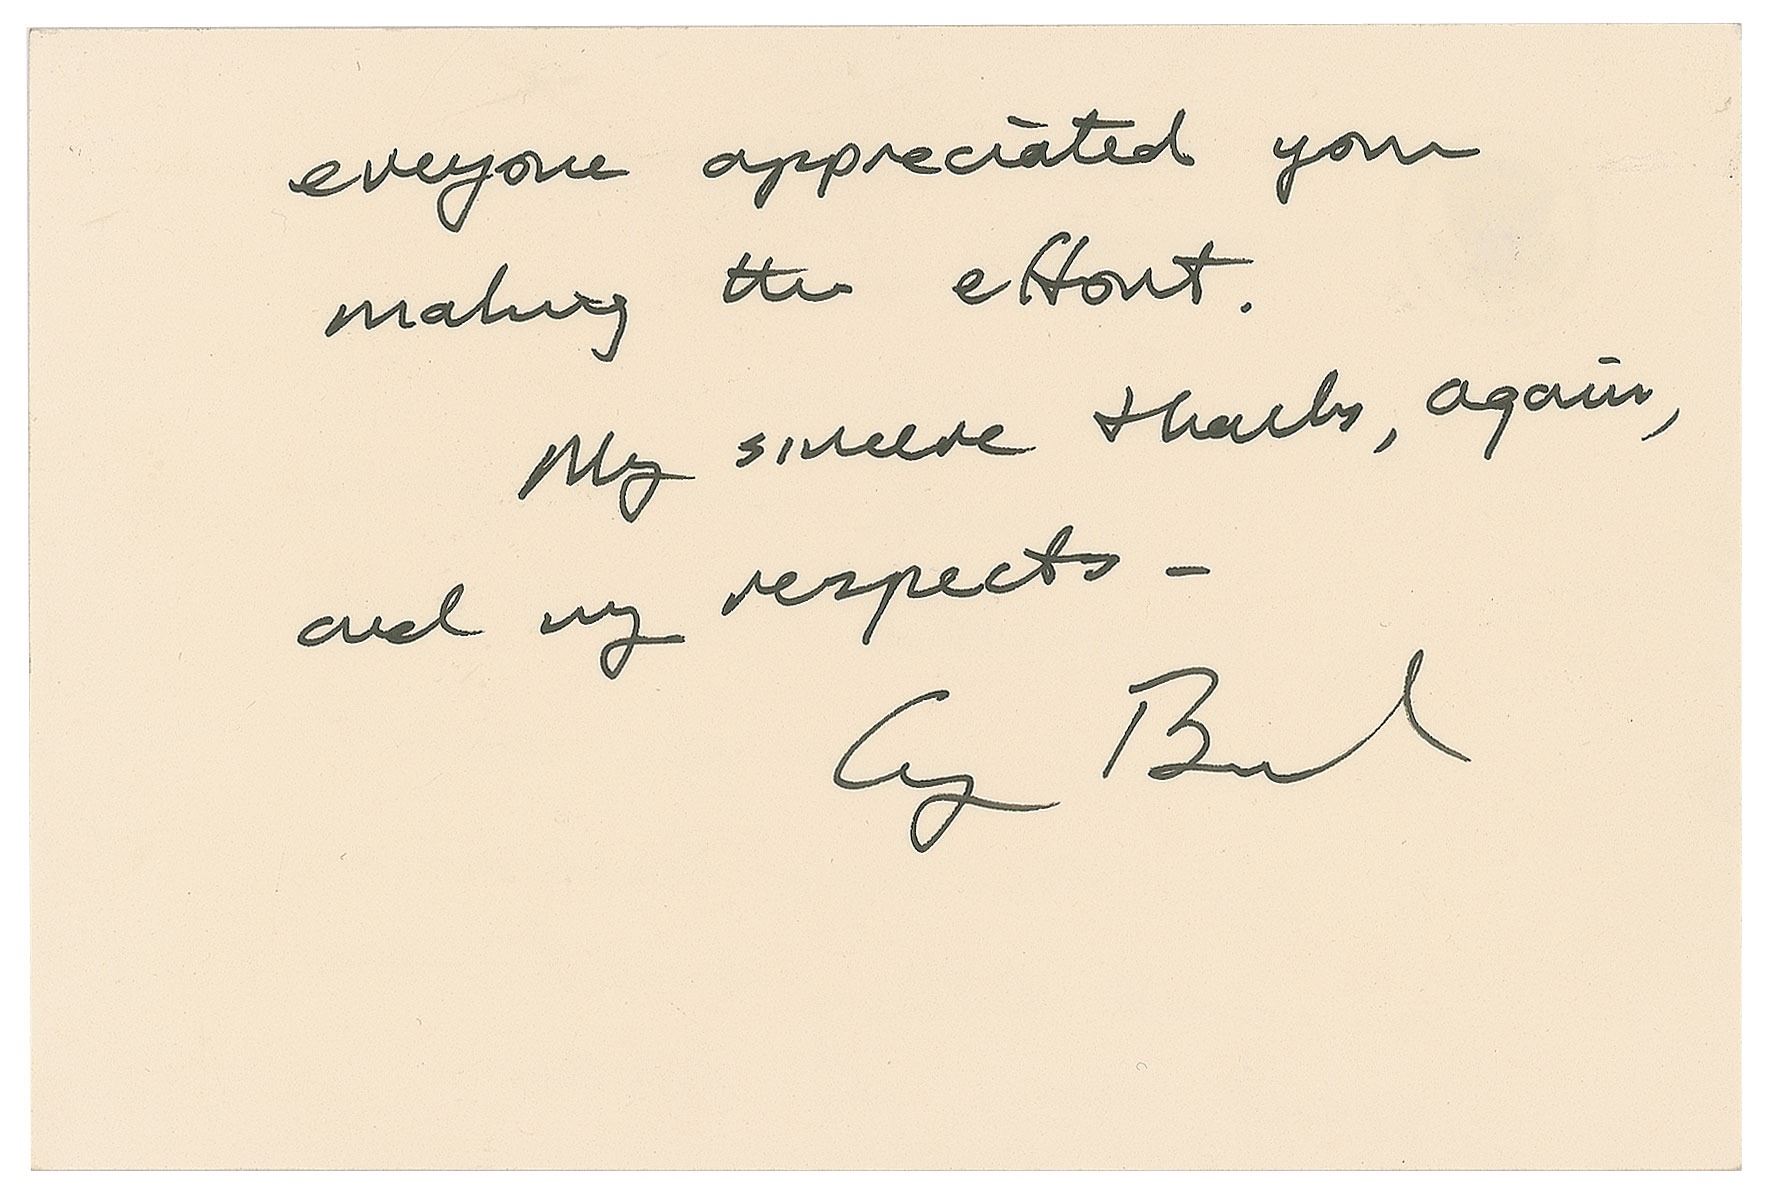 everyone appreciated your
making the effort.
My sincere thanks, again,
and my respects –